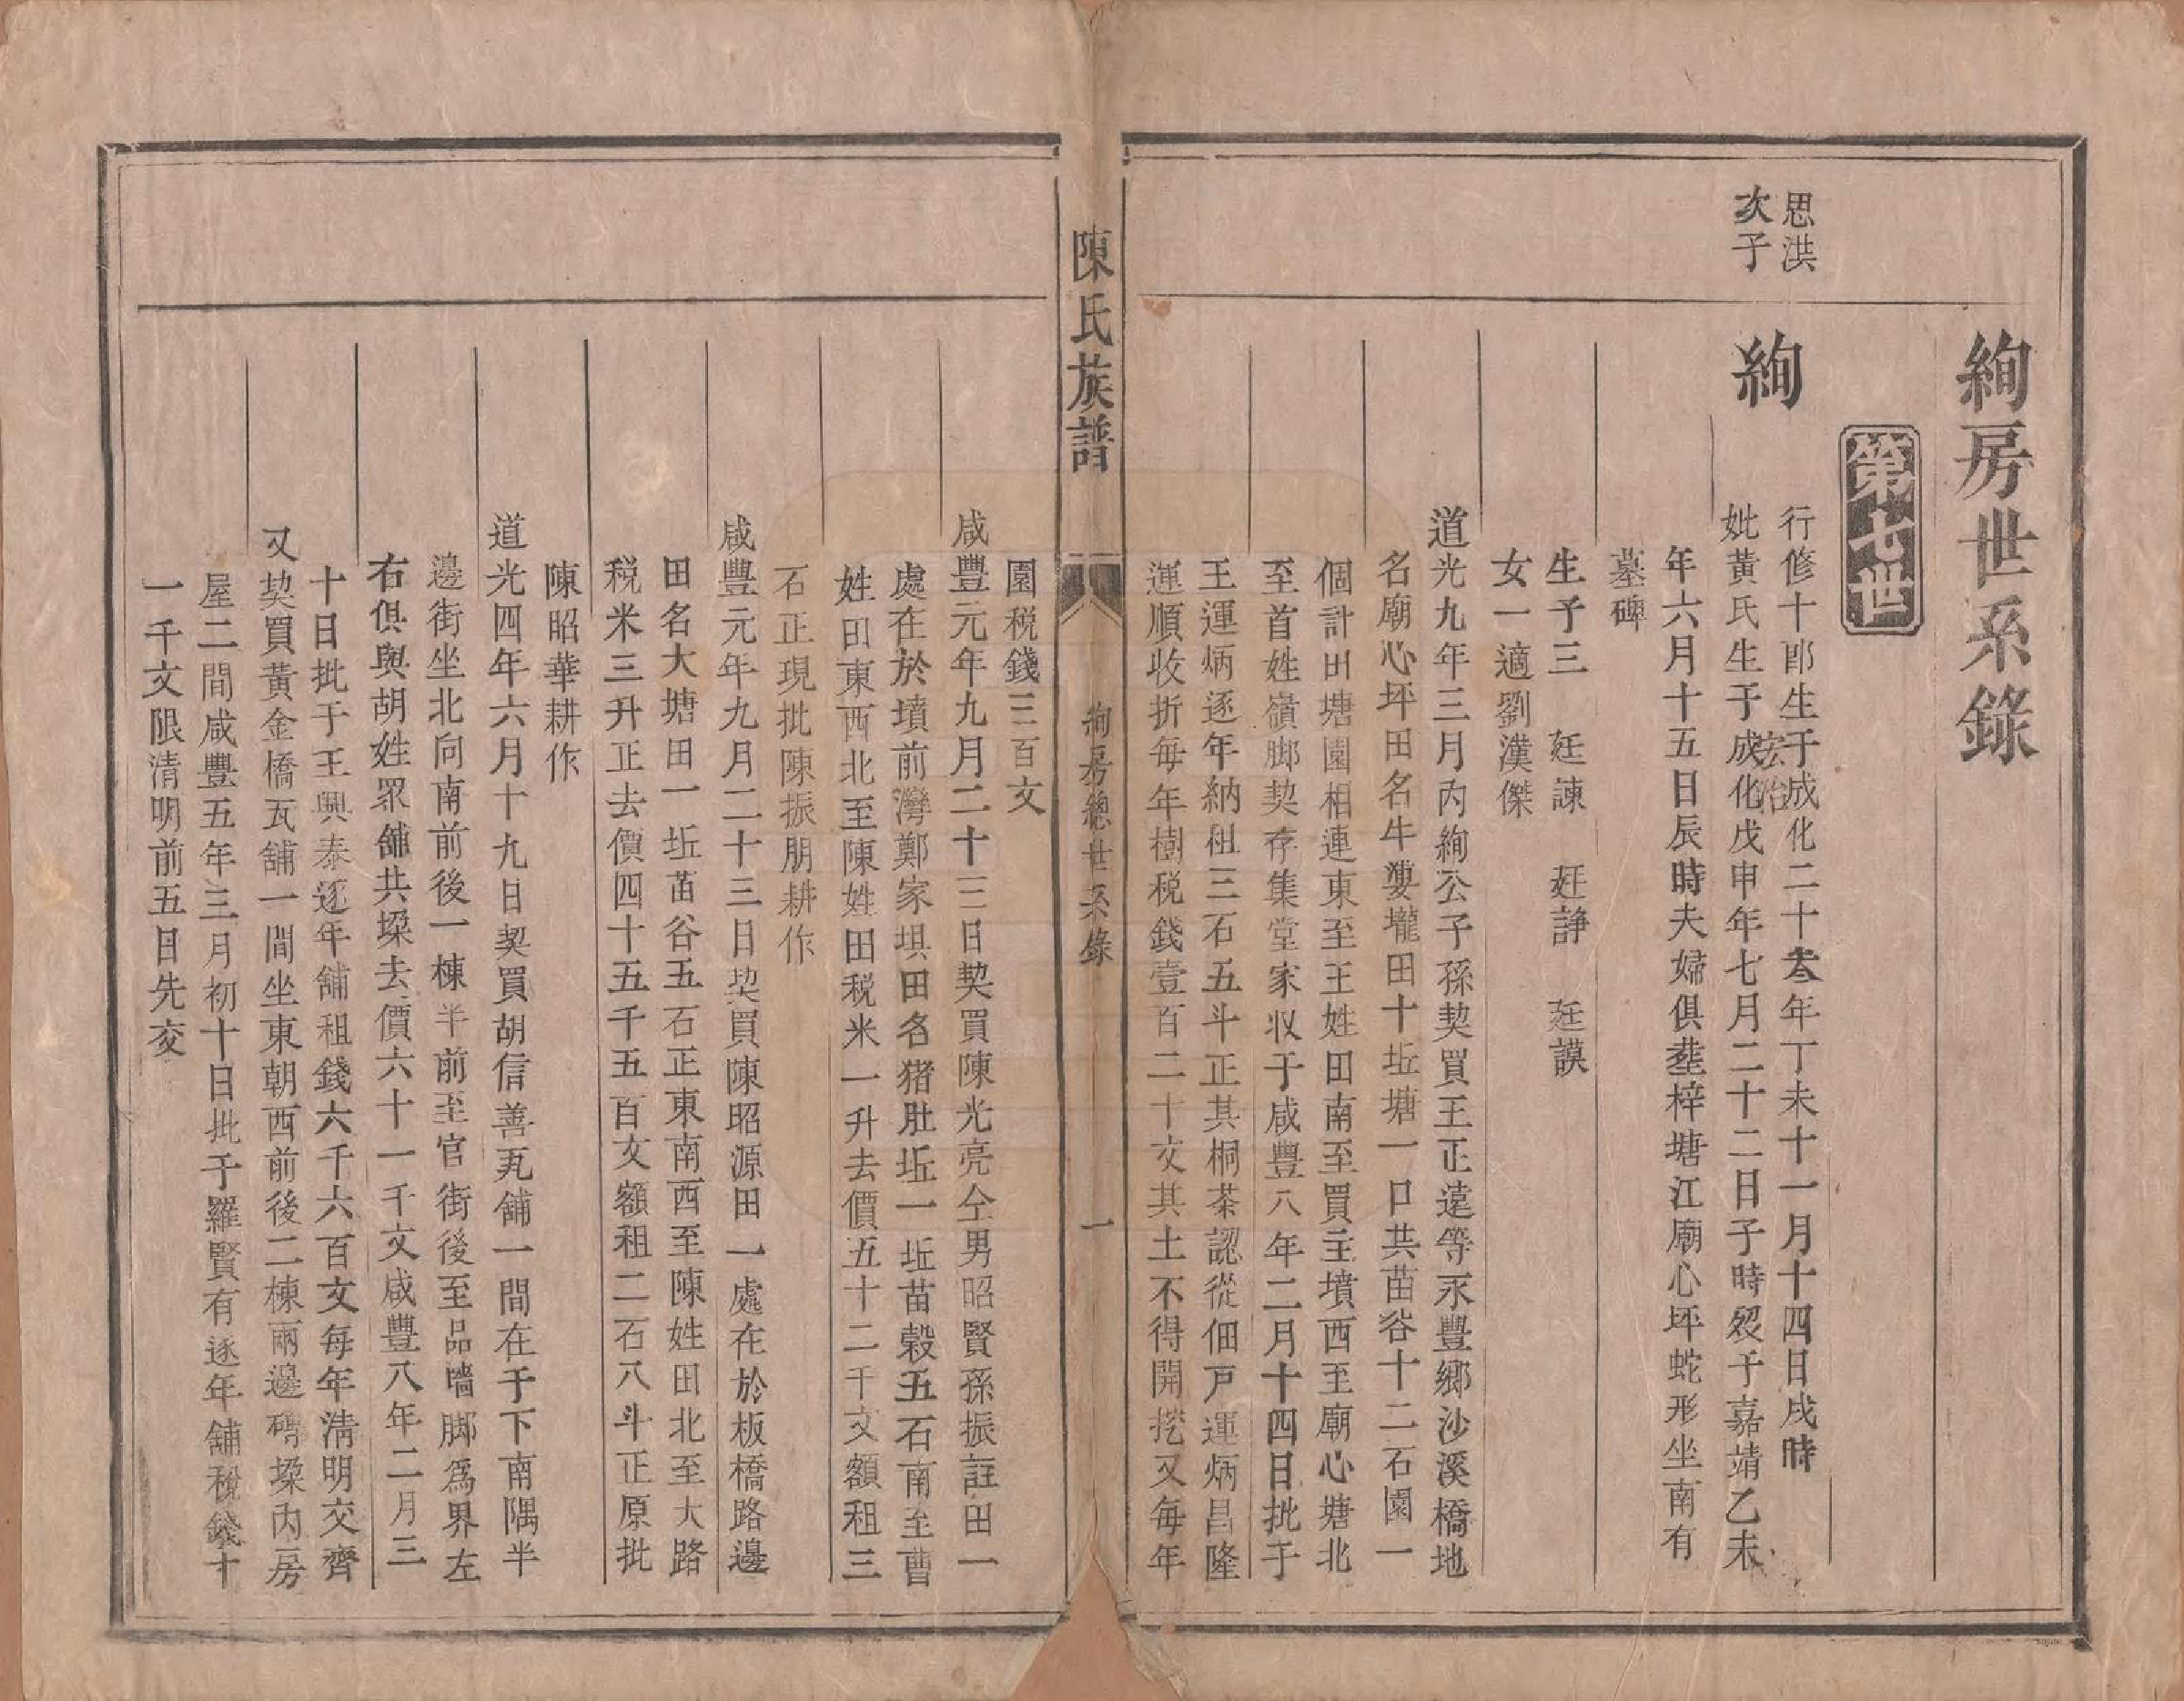 絢房世系錄
第七世
思洪
次子
絢
行修十郎生于成化二十叁年丁未十一月十四日戌時
妣黃氏生于成化戊申年七月二十二日子時歿于嘉靖乙未
宏治
年六月十五日辰時夫婦俱塟梓塘江廟心坪蛇形坐南有
墓碑
生子三 廷諫 廷諍 廷謨
女一適劉漢傑
道光九年三月內絢公子孫契買王正遠等永豐鄉沙溪橋地
名廟心坪田名牛婁壠田十坵塘一口共苗谷十二石園一
個計田塘園相連東至王姓田南至買主墳西至廟心塘北
至首姓嶺脚契存集堂家收于咸豐八年二月十四日批于
王運炳逐年納租三石五斗正其桐茶認從佃戸運炳昌隆
運順收折每年樹税錢壹百二十文其土不得開挖又每年
陳氏族譜
絢房總世系錄
一
園税錢三百文
咸豐元年九月二十三日契買陳光亮仝男昭賢孫振註田一
處在於墳前灣鄭家垻田名猪肚坵一坵苗穀五石南至曹
姓田東西北至陳姓田税米一升去價五十二千文額租三
石正現批陳振朋耕作
咸豐元年九月二十三日契買陳昭源田一處在於板橋路邊
田名大塘田一坵苗谷五石正東南西至陳姓田北至大路
税米三升正去價四十五千五百文額租二石八斗正原批
陳昭華耕作
道光四年六月十九日契買胡信善瓦舖一間在于下南隅半
邊街坐北向南前後一棟半前至官街後至品墻脚爲界左
右俱與胡姓眾舖共墚去價六十一千文咸豐八年二月三
十日批于王興泰逐年舖租錢六千六百文每年淸明交齊
又契買黃金橋瓦舖一間坐東朝西前後二棟兩邊磚墚內房
屋二間咸豐五年三月初十日批于羅賢有逐年舖税錢十
一千文限清明前五日先交